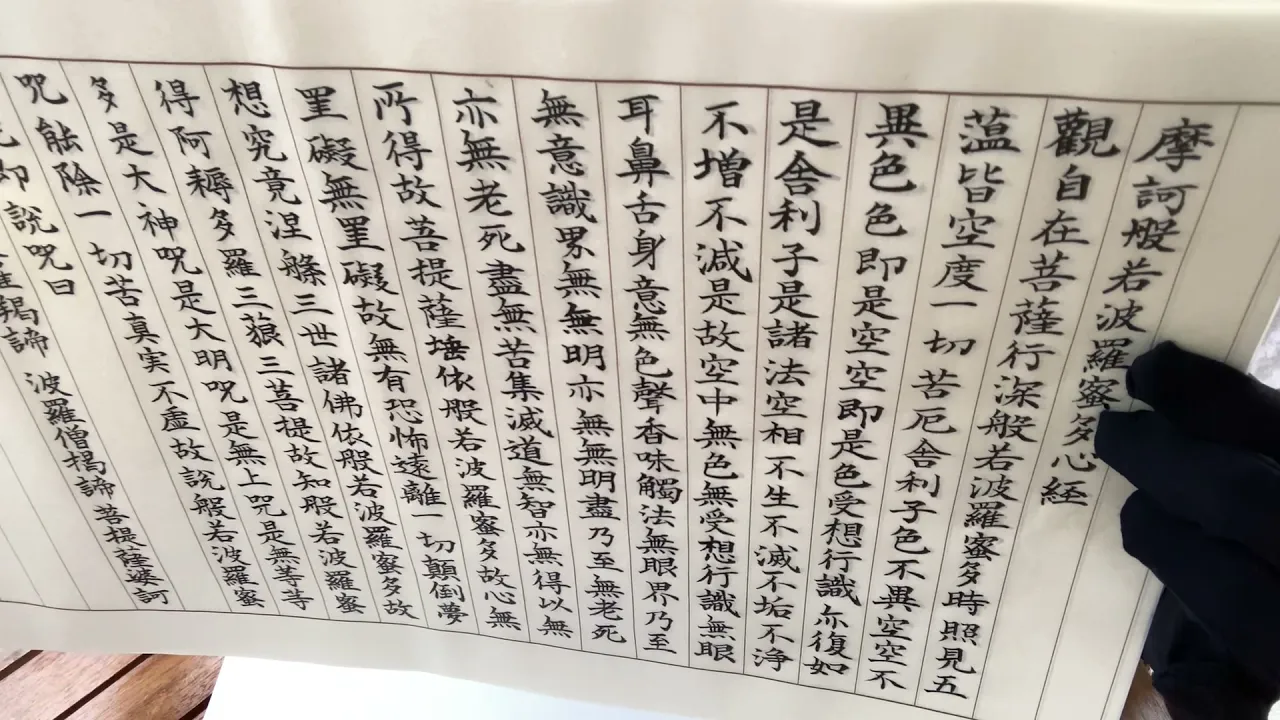 摩訶般若波羅蜜多心経
觀自在菩薩行深般若波羅蜜多時照見五
薀皆空度一切苦厄舍利子色不異空空不
異色色即是空空即是色受想行識亦復如
是舍利子是諸法空相不生不滅不垢不浄
不增不減是故空中無色無受想行識無眼
耳鼻舌身意無色聲香味觸法無眼界乃至
無意識界無無明亦無無明盡乃至無老死
亦無老死盡無苦集滅道無智亦無得以無
所得故菩提薩埵依般若波羅蜜多故心無
罣礙無罣礙故無有恐怖遠離一切顛倒夢
想究竟涅槃三世諸佛依般若波羅蜜多故
得阿耨多羅三藐三菩提故知般若波羅蜜
多是大神呪是大明呪是無上呪是無等等
呪能除一切苦真実不虚故説般若波羅蜜
即說呪曰
羯諦 波羅僧揭諦 菩提薩婆訶